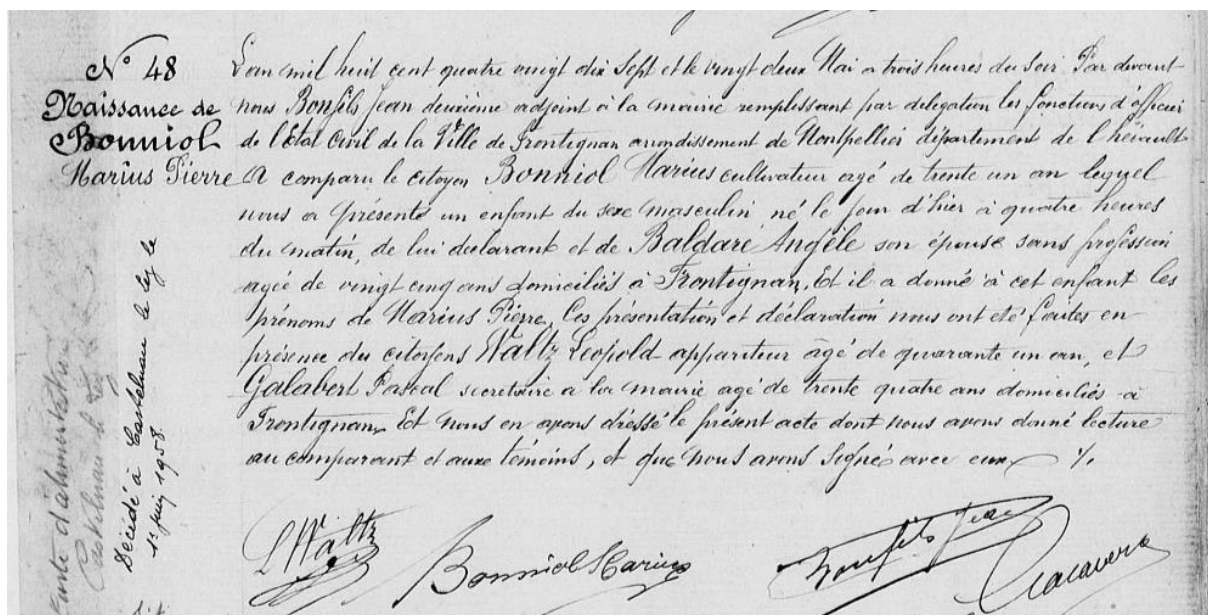 N° 48
Naissance de
Bonniol
Marius Pierre
L'an mil huit cent quatre vingt dix sept et le vingt deux Mai a trois heures du soir Par devant
nous Bonfils Jean deuxième adjoint à la mairie remplissant par délégation les fonctions d'officier
de l'Etat Civil de la Ville de Frontignan arrondissement de Montpellier département de l'hérault
A comparu le citoyen Bonniol Marius cultivateur agé de trente un an lequel
nous a présenté un enfant du sexe masculin né le jour d'hier à quatre heures
du matin, de lui déclarant et de Baldaré Angèle son épouse sans profession
agée de vingt cinq ans domiciliés à Frontignan, Et il a donné à cet enfant les
prénoms de Marius Pierre, Ces présentation et déclaration nous ont été faites en
présence du citoyens Waltz Leopold appariteur âgé de quarante un an, et
Galabert Pascal secretaire a la mairie agé de trente quatre ans domiciliés à
Frontignan, Et nous en avons dréssé le présent acte dont nous avons donné lecture
au comparant et aux témoins, et que nous avons signé avec eux ./.
Décédé à Castelnau le lez le
1er juin 1958.
L Waltz
Bonniol Marius
Bonfils Jean